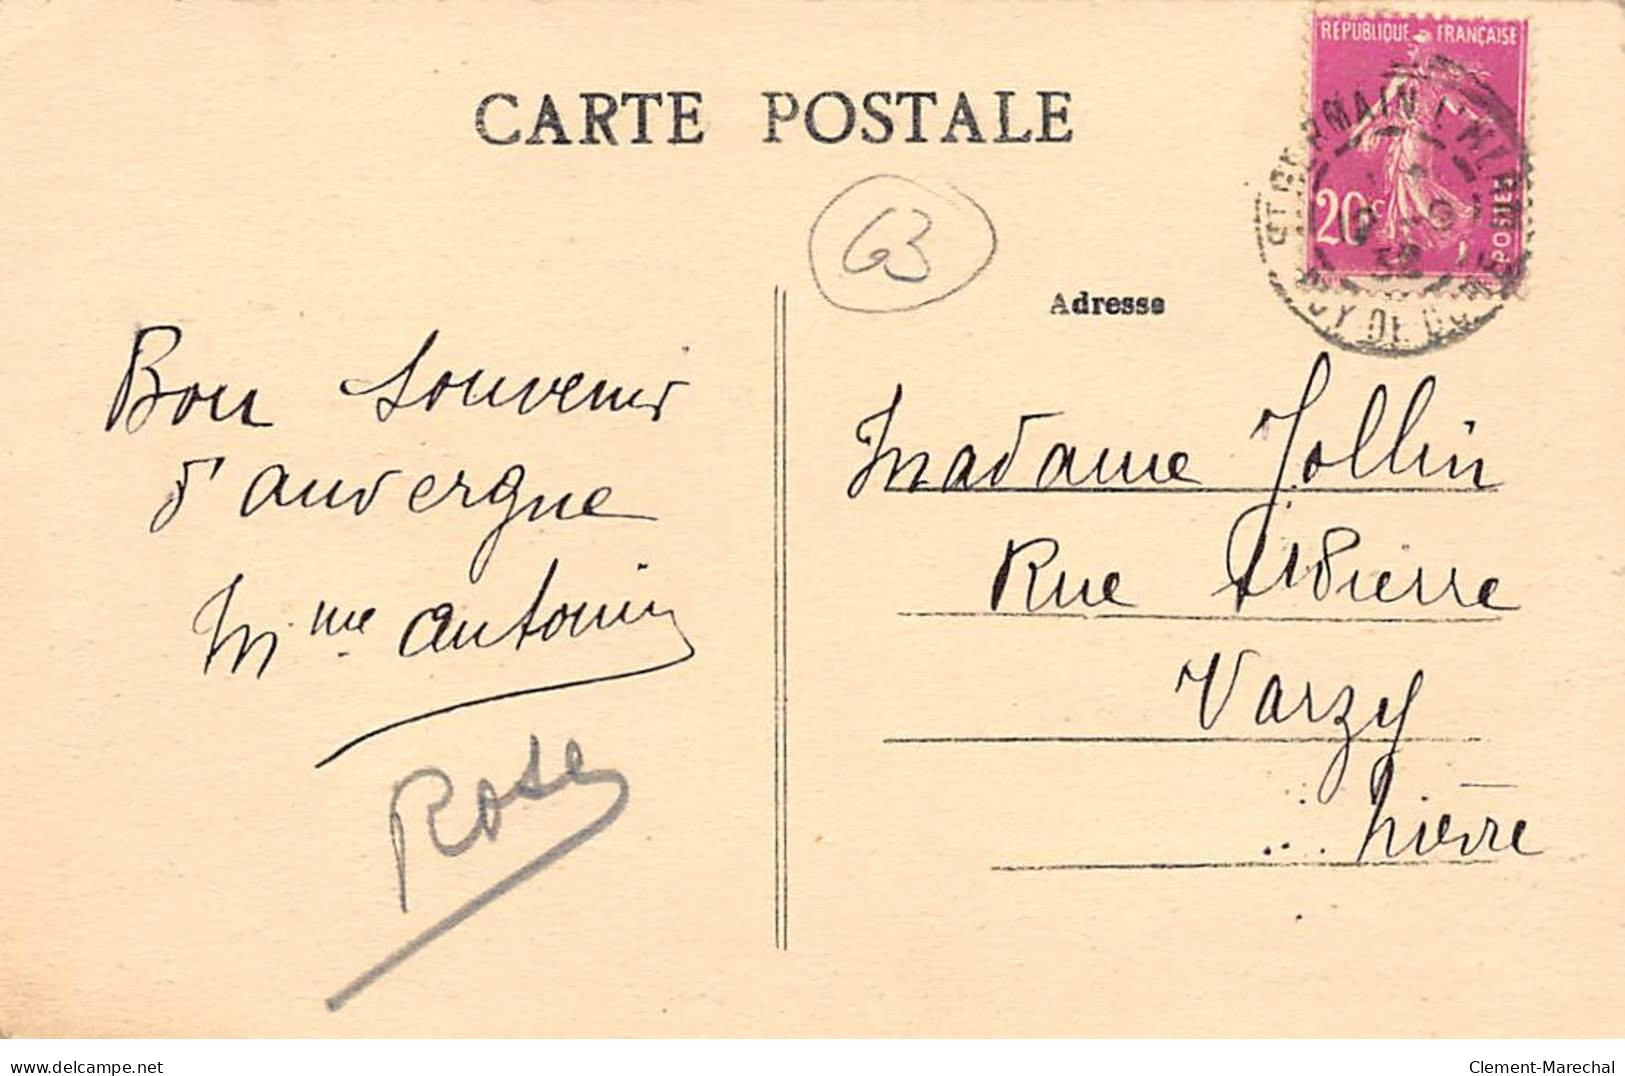 CARTE POSTALE
RÉPUBLIQUE FRANÇAISE
20c
POSTES
ST GERMAIN L'HERM
PUY DE DOME
63
Adresse
Bon souvenir
d'auvergne
Mme antonin
Rose
Madame Jollin
Rue St Pierre
Varzy
Nièvre
delcampe.net
Clement-Marechal